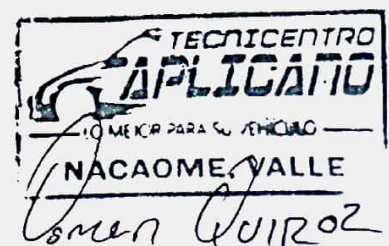 TECNICENTRO
APLICANO
LO MEJOR PARA SU VEHICULO
NACAOME, VALLE
Osman QUIROZ